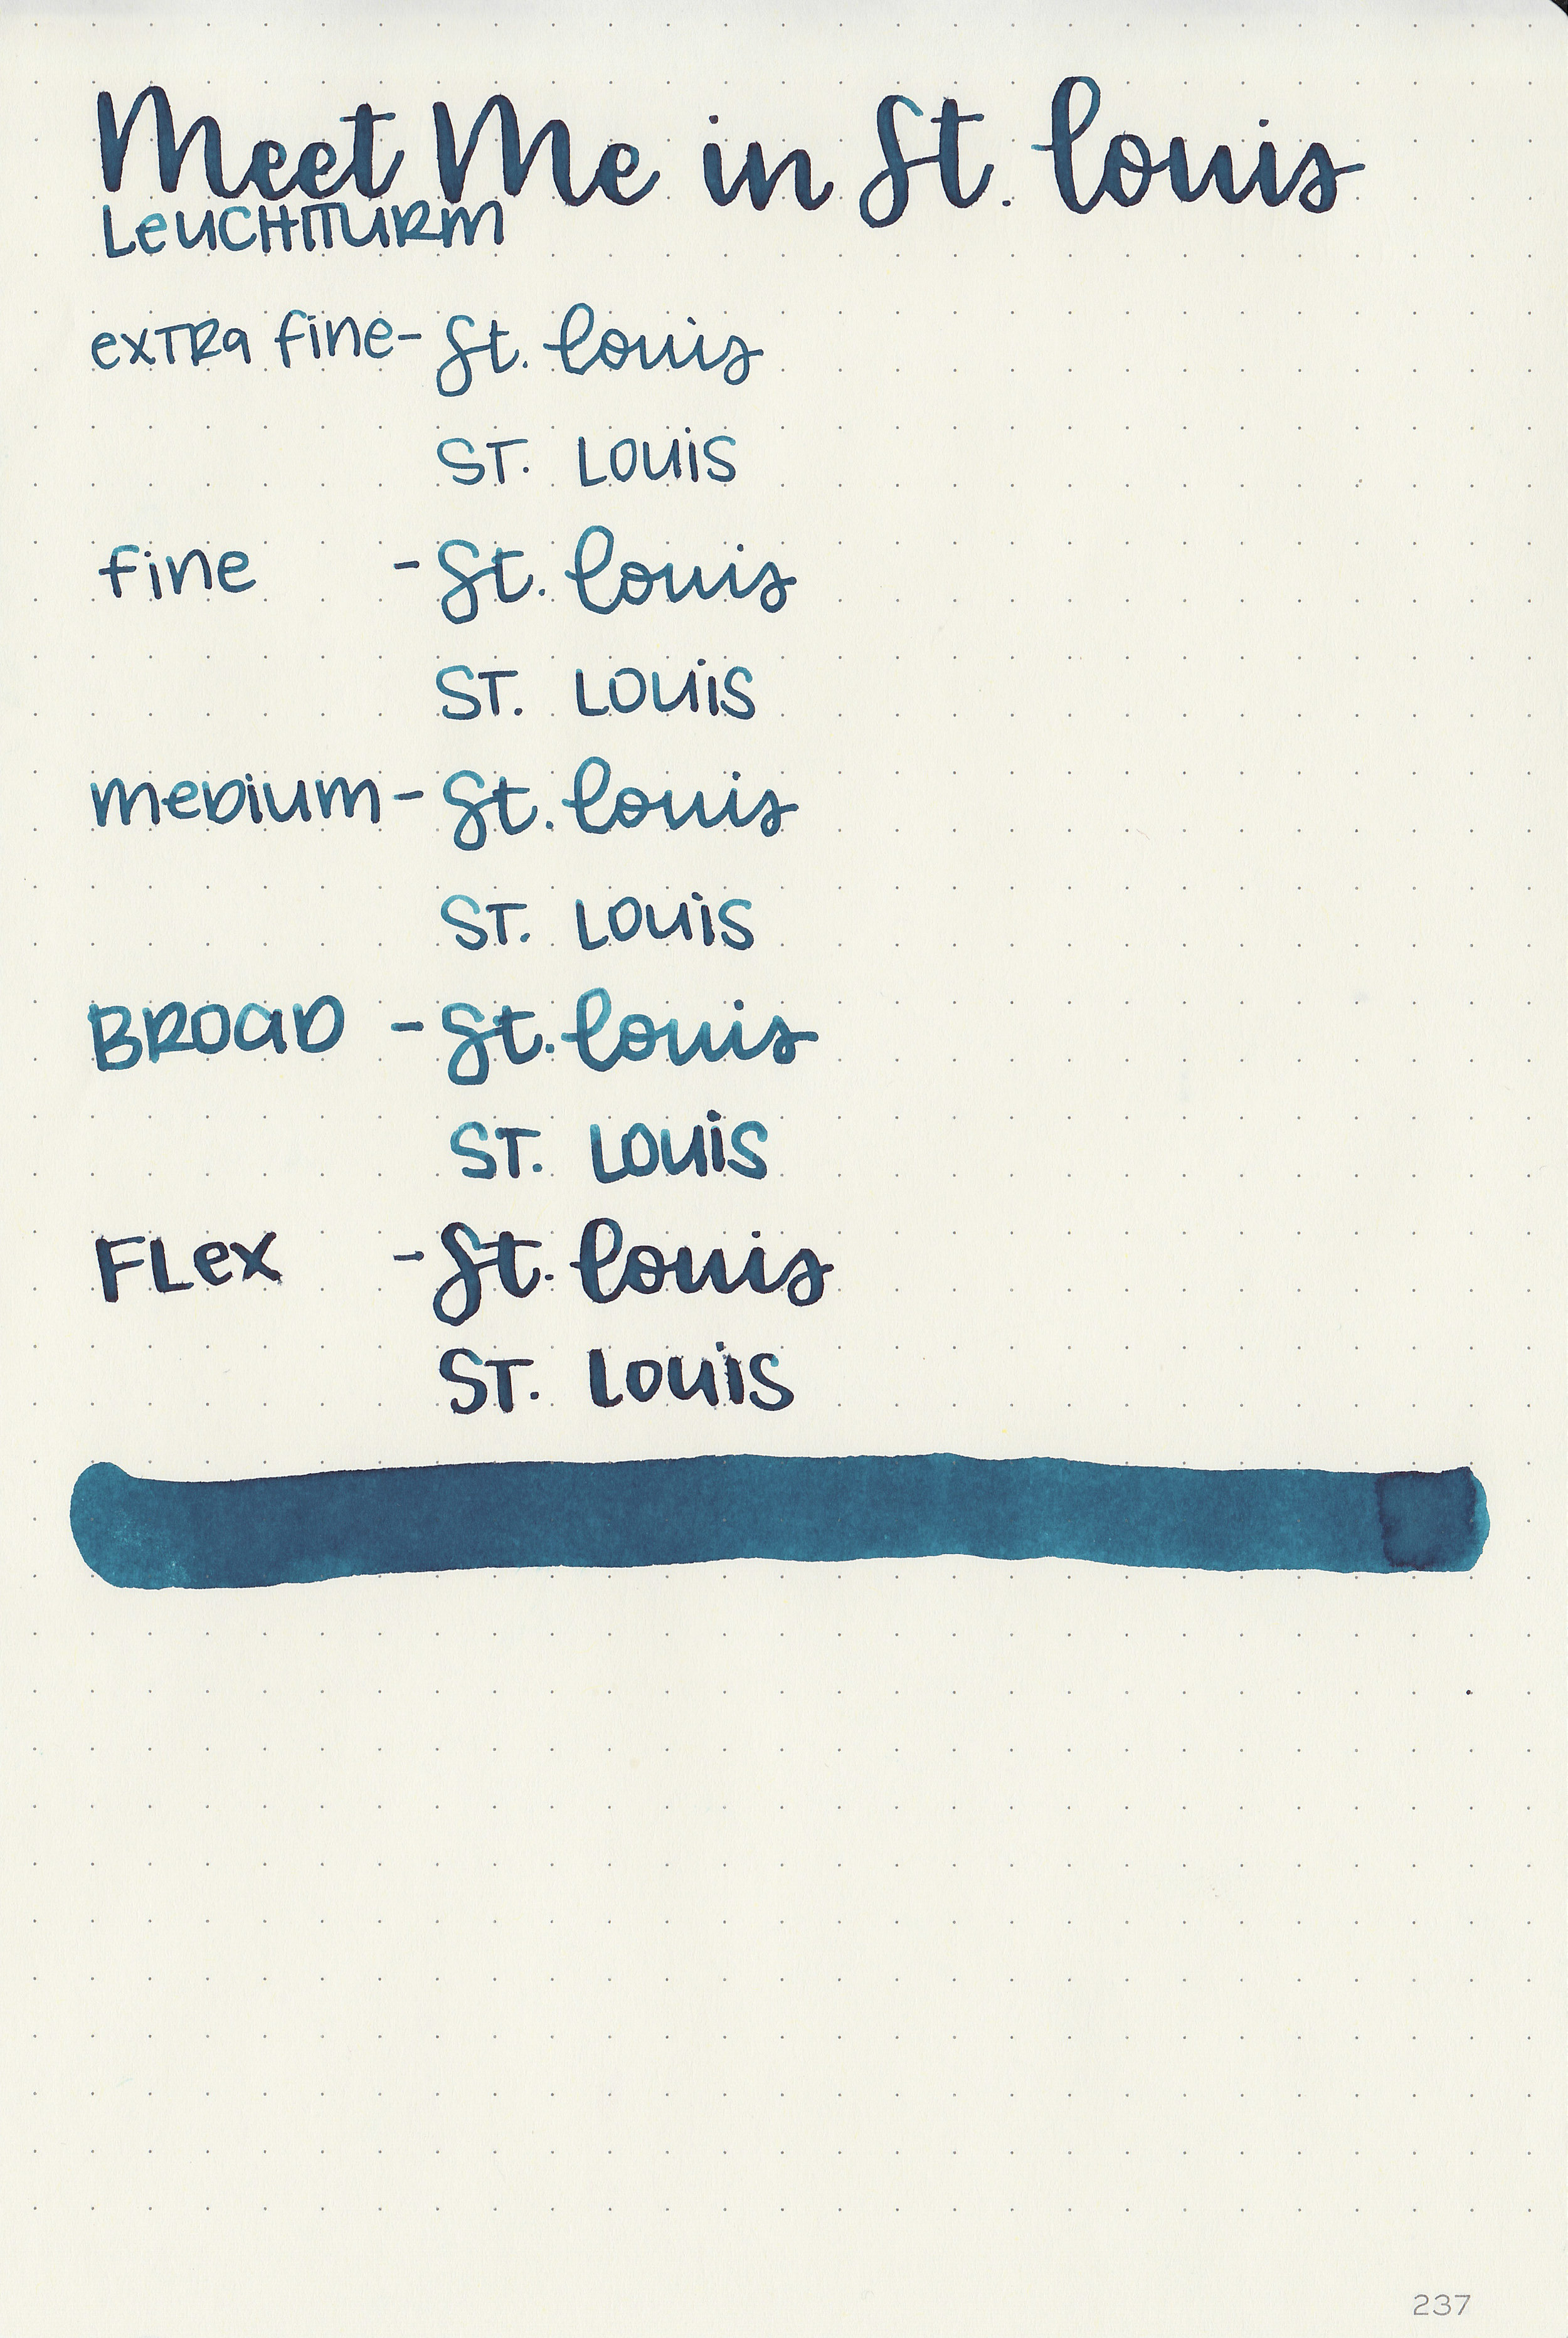 Meet Me in St. Louis
LeUCHTTURM
exTRa fine- St. Louis
ST. LOUiS
fine - St. Louis
ST. LOUiS
meDium - St. Louis
ST. LOUiS
BROaD - St. Louis
ST. LOUiS
FLex - St. Louis
ST. LOUiS
237